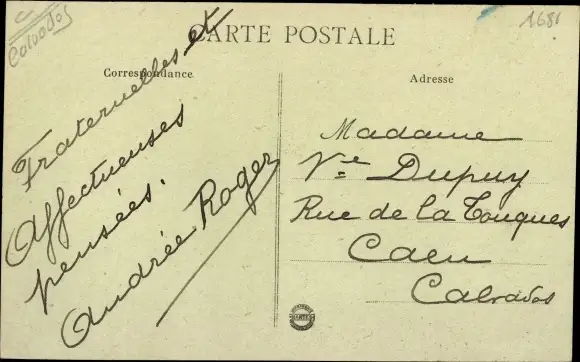 Calvados
1681
CARTE POSTALE
Correspondance
Adresse
Fraternelles et
Affectueuses
pensées.
Andrée Roger
Madame
Vve Dupuy
Rue de la Touques
Caen
Calvados